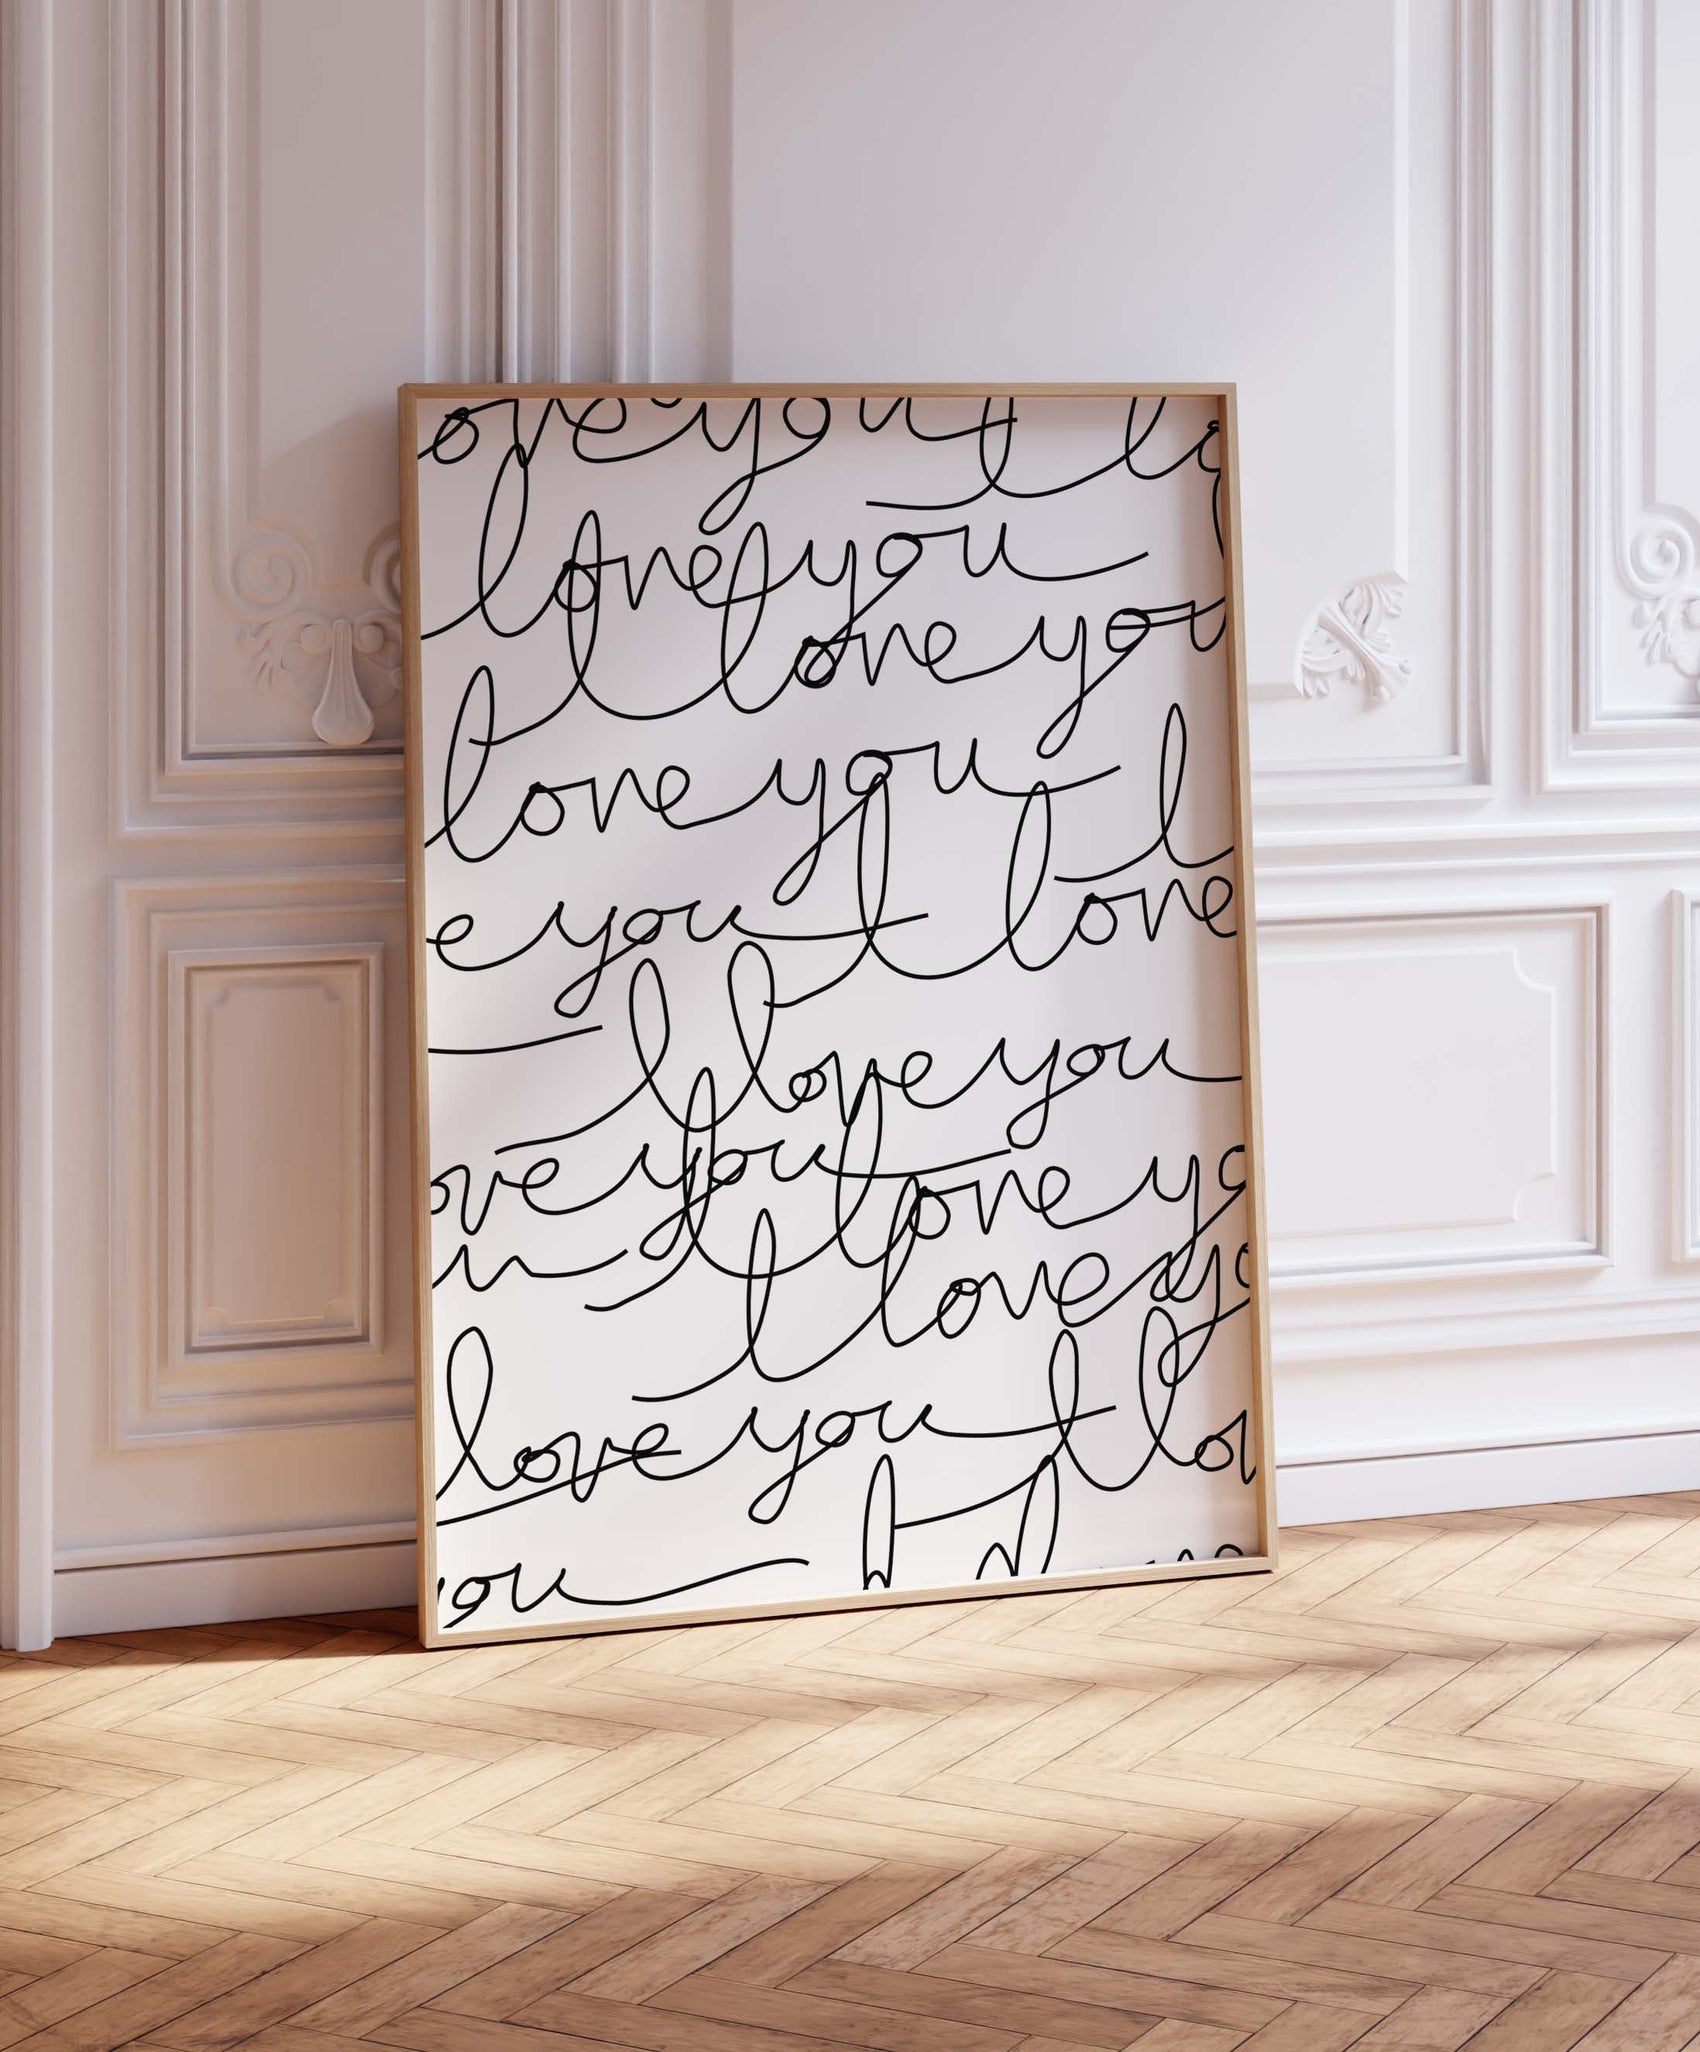 ove you I lo
love you
I love you
love you I
e you I love
I love you
ove you I love yo
u I love yo
love you I lov
you I